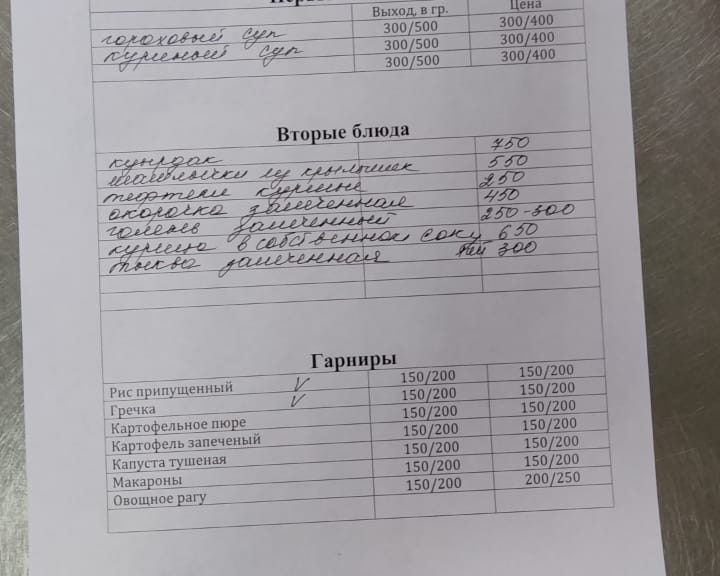 Выход, в гр. Цена
гороховый суп 300/500 300/400
куриный суп 300/500 300/400
300/500 300/400
Вторые блюда
куырдак 750
шашлычки из крылышек 550
тефтели куриные 250
окорочка запеченная 450
голень запеченный 250-300
курица в собственном соку 650
тыква запеченная 300
Гарниры
Рис припущенный V 150/200 150/200
Гречка V 150/200 150/200
Картофельное пюре 150/200 150/200
Картофель запеченый 150/200 150/200
Капуста тушеная 150/200 150/200
Макароны 150/200 150/200
Овощное рагу 150/200 200/250